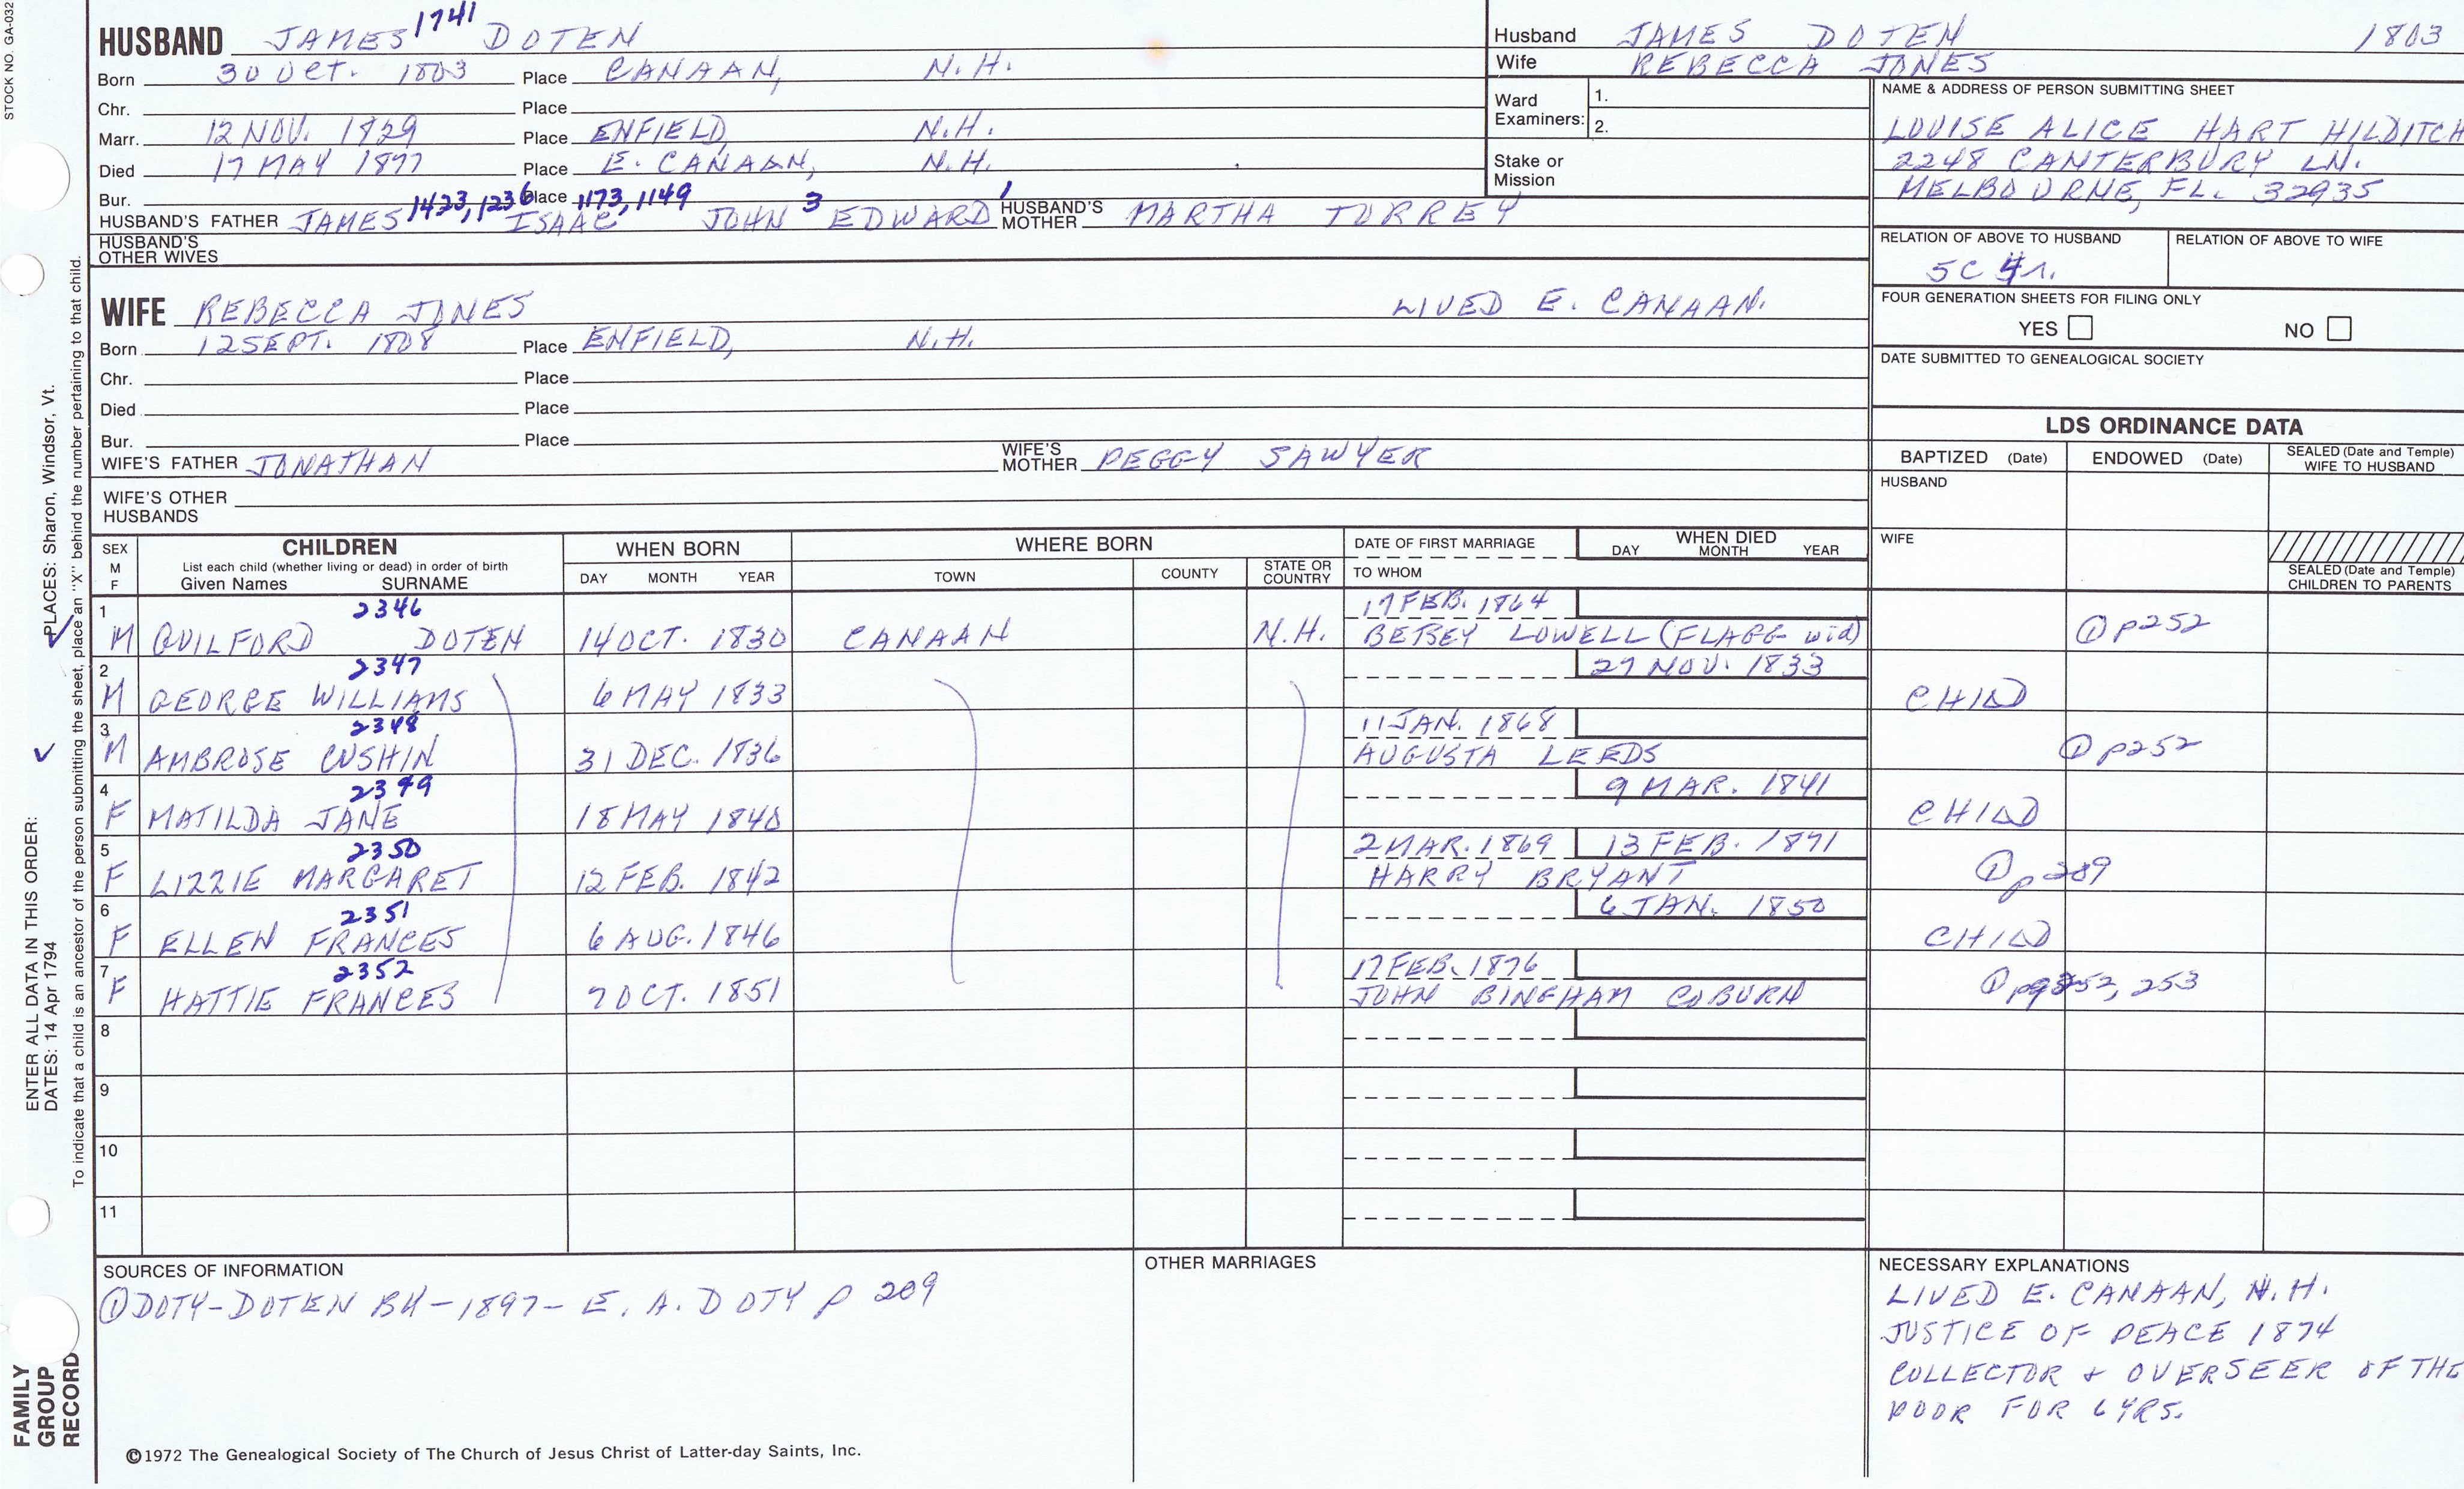 STOCK NO. GA-032
HUSBAND JAMES 1741 DOTEN
Born 30 OCT. 1803 Place CANAAN, N.H.
Chr. Place
Marr. 12 NOV. 1829 Place ENFIELD, N.H.
Died 17 MAY 1877 Place E. CANAAN, N.H.
Bur. Place
HUSBAND'S FATHER JAMES 1423, 1236 ISAAC 1173, 1149 JOHN 3 EDWARD 1 HUSBAND'S MOTHER MARTHA TORREY
HUSBAND'S OTHER WIVES
WIFE REBECCA JONES LIVED E. CANAAN.
Born 12 SEPT. 1808 Place ENFIELD, N.H.
Chr. Place
Died Place
Bur. Place
WIFE'S FATHER JONATHAN WIFE'S MOTHER PEGGY SAWYER
WIFE'S OTHER HUSBANDS
Husband JAMES DOTEN 1803
Wife REBECCA JONES
Ward Examiners: 1.
2.
Stake or Mission
NAME & ADDRESS OF PERSON SUBMITTING SHEET
LOUISE ALICE HART HILDITCH
2248 CANTERBURY LN.
MELBOURNE, FL. 32935
RELATION OF ABOVE TO HUSBAND RELATION OF ABOVE TO WIFE
5C 4r.
FOUR GENERATION SHEETS FOR FILING ONLY
YES NO
DATE SUBMITTED TO GENEALOGICAL SOCIETY
LDS ORDINANCE DATA
BAPTIZED (Date) ENDOWED (Date) SEALED (Date and Temple) WIFE TO HUSBAND
HUSBAND
WIFE
SEALED (Date and Temple) CHILDREN TO PARENTS
SEX M F CHILDREN WHEN BORN WHERE BORN DATE OF FIRST MARRIAGE WHEN DIED
List each child (whether living or dead) in order of birth
Given Names SURNAME DAY MONTH YEAR TOWN COUNTY STATE OR COUNTRY TO WHOM DAY MONTH YEAR
1 2346 17 FEB. 1864
M GUILFORD DOTEN 14 OCT. 1830 CANAAN N.H. BETSEY LOWELL (FLAGG wid) ① p252
2 2347 27 NOV. 1833
M GEORGE WILLIAMS 6 MAY 1833 CHILD
3 2348 11 JAN. 1868
M AMBROSE CUSHIN 31 DEC. 1836 AUGUSTA LEEDS ① p252
4 2349 9 MAR. 1841
F MATILDA JANE 18 MAY 1840 CHILD
5 2350 2 MAR. 1869 13 FEB. 1871
F LIZZIE MARGARET 12 FEB. 1842 HARRY BRYANT ① p209
6 2351 6 JAN. 1850
F ELLEN FRANCES 6 AUG. 1846 CHILD
7 2352 17 FEB. 1876
F HATTIE FRANCES 7 OCT. 1851 JOHN BINGHAM COBURN ① pg 252, 253
8
9
10
11
SOURCES OF INFORMATION
① DOTY-DOTEN BK-1897- E. A. DOTY p 209
OTHER MARRIAGES
NECESSARY EXPLANATIONS
LIVED E. CANAAN, N.H.
JUSTICE OF PEACE 1874
COLLECTOR + OVERSEER OF THE
POOR FOR 6 YRS.
©1972 The Genealogical Society of The Church of Jesus Christ of Latter-day Saints, Inc.
FAMILY GROUP RECORD
ENTER ALL DATA IN THIS ORDER:
DATES: 14 Apr 1794
PLACES: Sharon, Windsor, Vt.
To indicate that a child is an ancestor of the person submitting the sheet, place an "X" behind the number pertaining to that child.